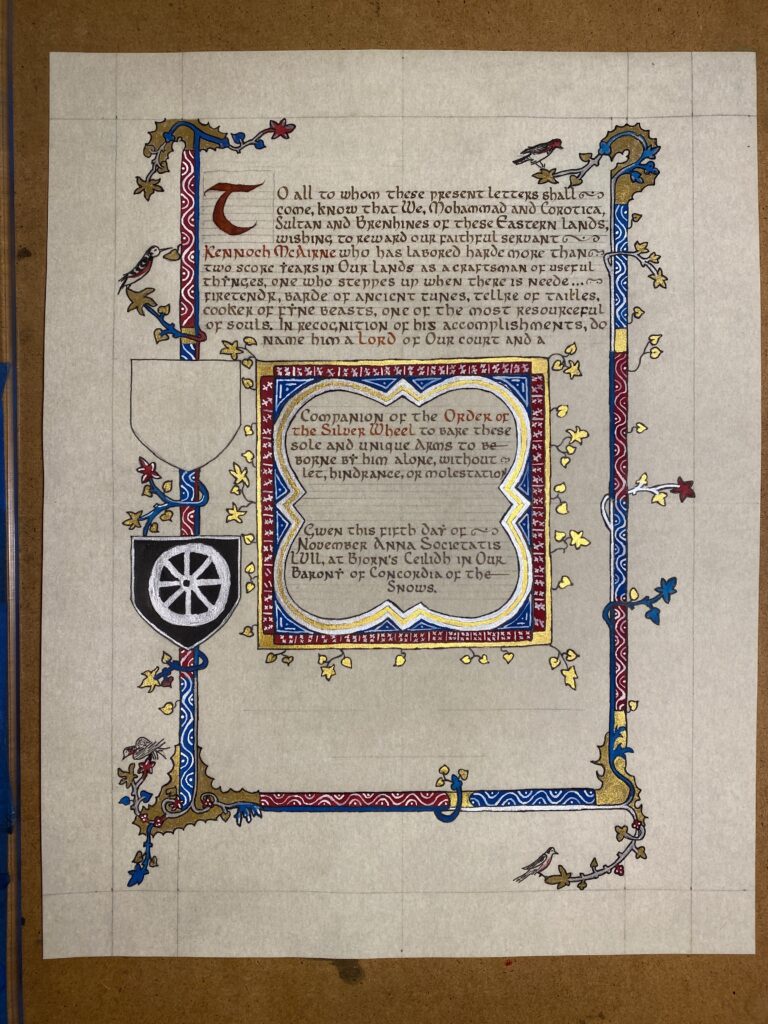 To all to whom these present letters shall
come, know that We, Mohammad and Corotica,
Sultan and Brenhines of these Eastern Lands,
wishing to reward our faithful servant
Kennoch McAirne who has labored harde more than
two score years in Our lands as a craftsman of useful
thynges, one who steppes up when there is neede...
firetendr, barde of ancient tunes, tellre of taitles,
cooker of fyne beasts, one of the most resourceful
of souls. In recognition of his accomplishments, do
name him a Lord of Our court and a
Companion of the Order of
the Silver Wheel to bare these
sole and unique Arms to be
borne by him alone, without
let, hindrance, or molestation
Given this fifth day of
November Anna Societatis
LVII, at Bjorn's Ceilidh in Our
Barony of Concordia of the
Snows.